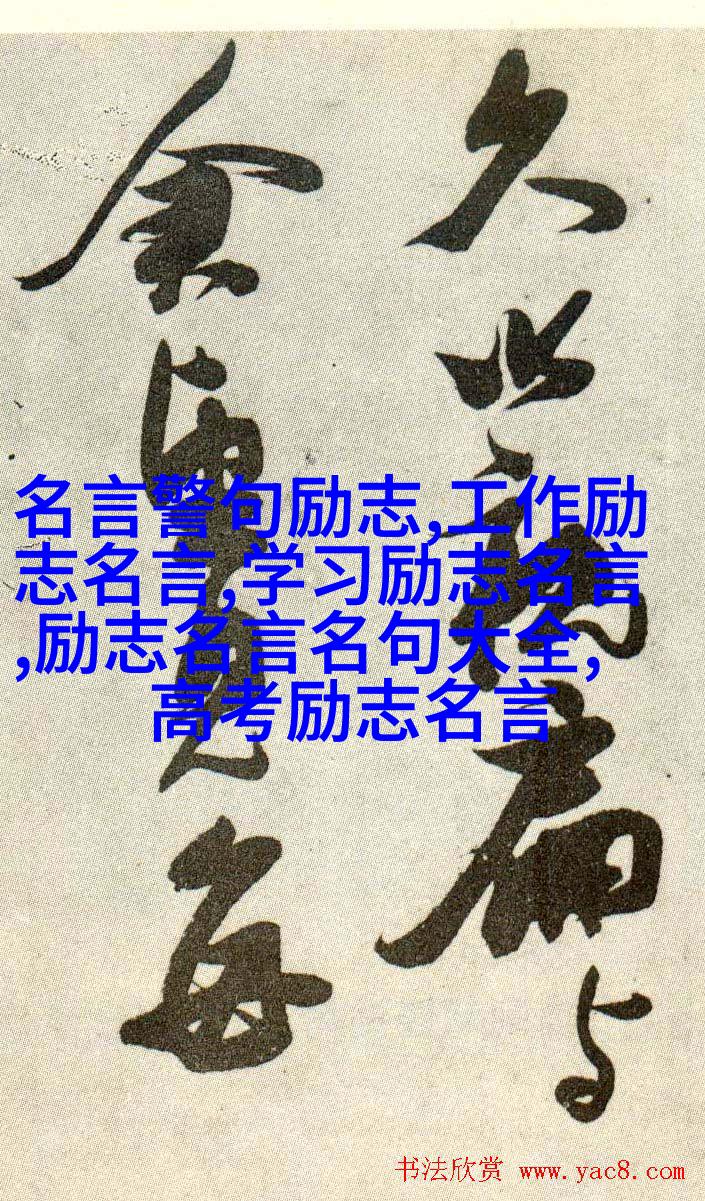 久扁与
余見每
名言警句励志,工作励
志名言,学习励志名言
,励志名言名句大全,
高考励志名言
书法欣赏 www.yac8.com